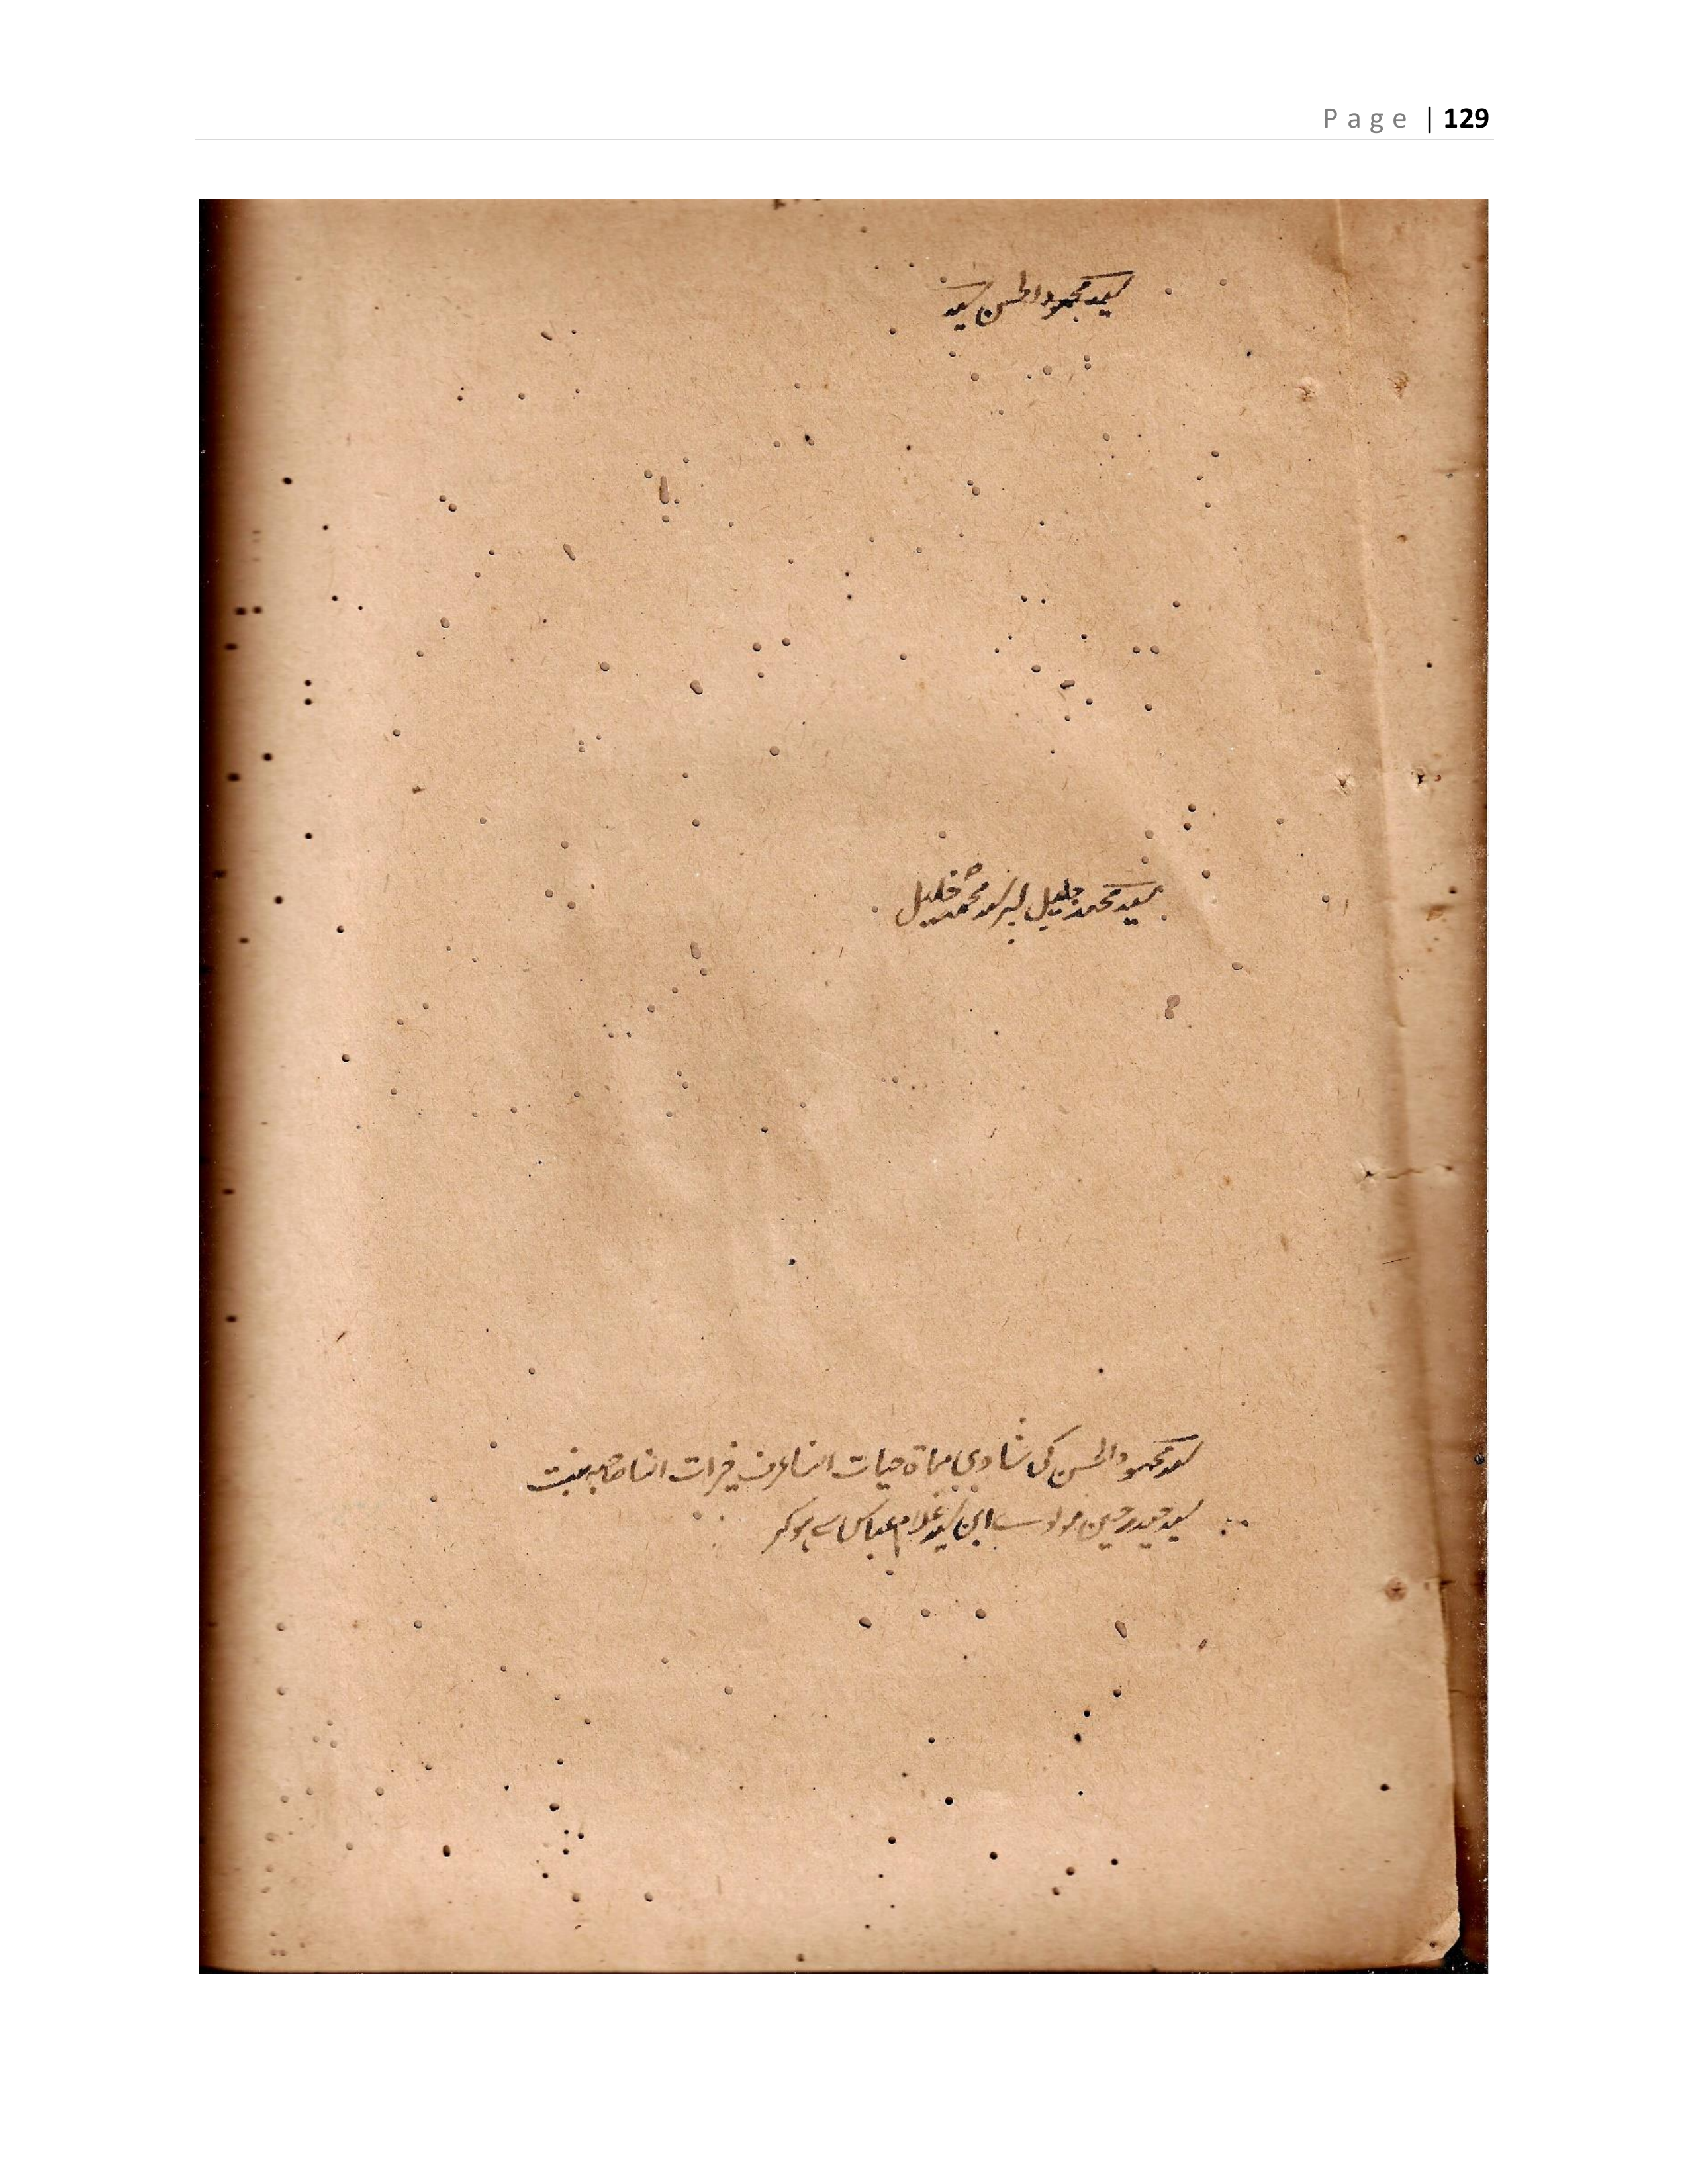 Page | 129
سید محمود الحسن سید
سید محمد جلیل پسر سید محمد خلیل
سید محمود الحسن کی شادی مسماۃ حیات النسا عرف خیرات النسا صاحبہ بنت
سید حیدر حسین ابن سید غلام عباس سے ہوکر